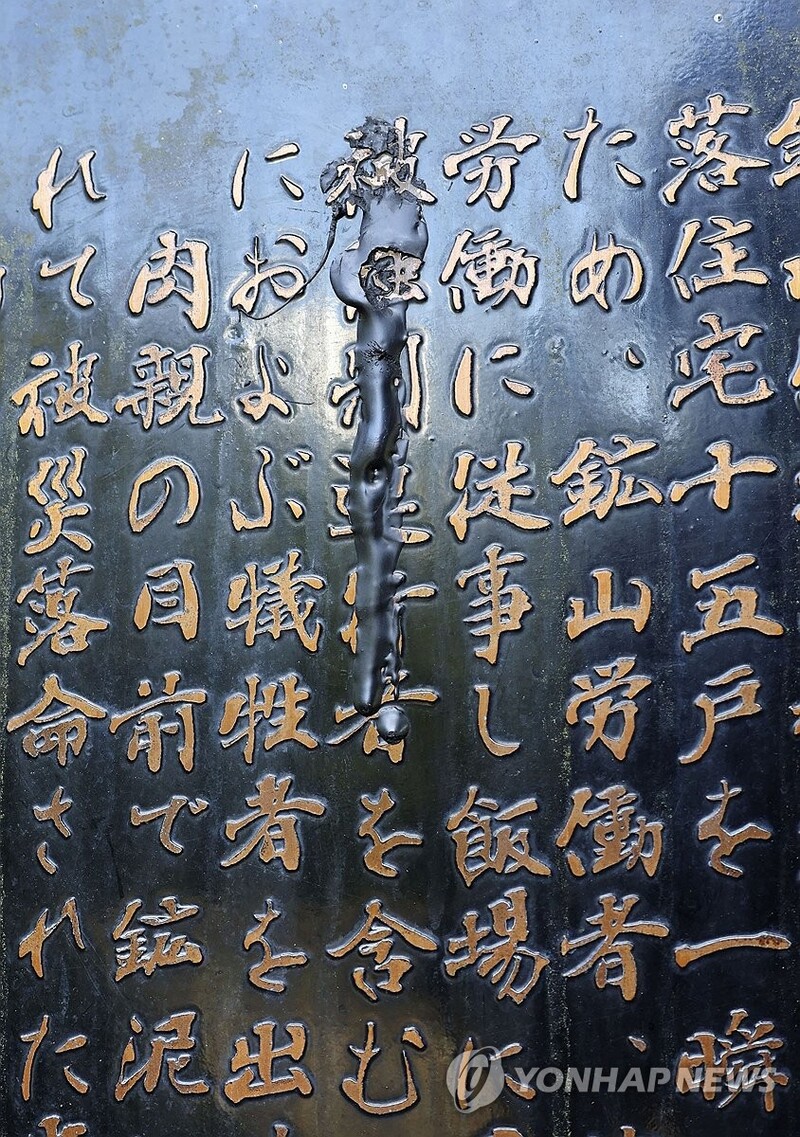 落住宅十五戸を一瞬
ため、鉱山労働者、
労働に従事し飯場に
被強制連行者を含む
におよぶ犠牲者を出
肉親の目前で鉱泥
れて被災落命された
YONHAP NEWS